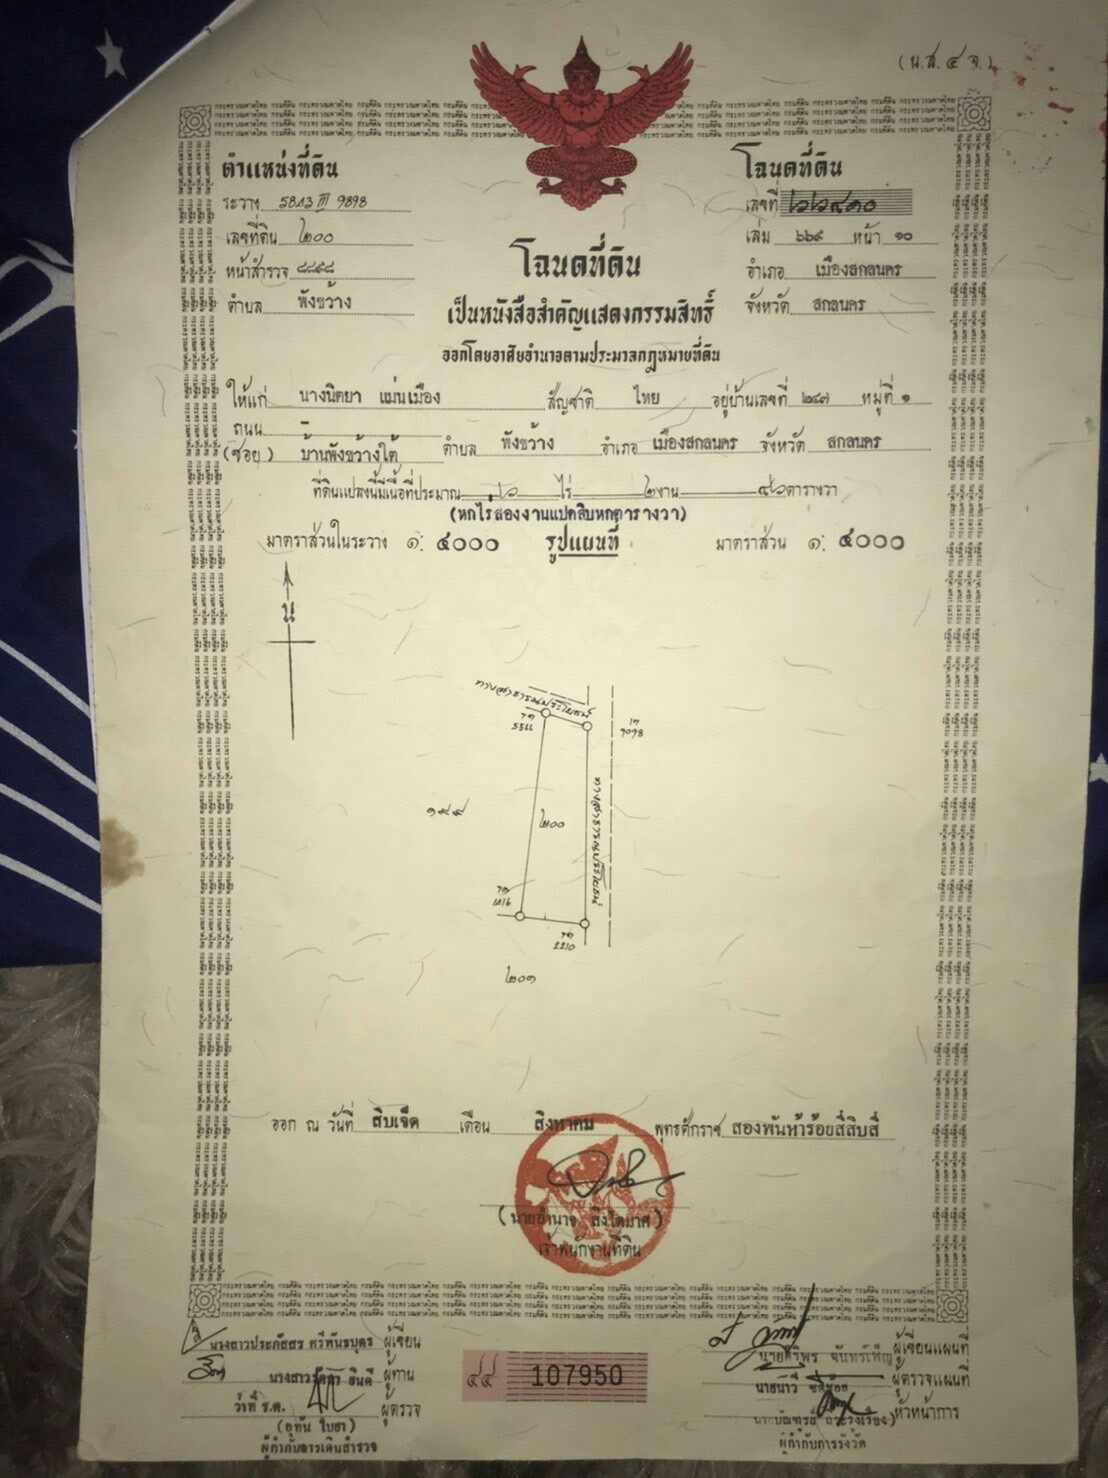 (น.ส. ๔ จ.)
ตำแหน่งที่ดิน
ระวาง 5843 III 9898
เลขที่ดิน ๒๐๐
หน้าสำรวจ
ตำบล พังขว้าง
โฉนดที่ดิน
เลขที่
เล่ม ๖๖๙ หน้า ๑๐
อำเภอ เมืองสกลนคร
จังหวัด สกลนคร
โฉนดที่ดิน
เป็นหนังสือสำคัญแสดงกรรมสิทธิ์
ออกโดยอาศัยอำนาจตามประมวลกฎหมายที่ดิน
ให้แก่ นางนิตยา แม่นเมือง สัญชาติ ไทย อยู่บ้านเลขที่ ๒๔๗ หมู่ที่ ๑
ถนน –
(ซอย) บ้านพังขว้างใต้ ตำบล พังขว้าง อำเภอ เมืองสกลนคร จังหวัด สกลนคร
ที่ดินแปลงนี้มีเนื้อที่ประมาณ ๖ ไร่ ๒ งาน ๘๖ ตารางวา
(หกไร่สองงานแปดสิบหกตารางวา)
มาตราส่วนในระวาง ๑: ๔๐๐๐ รูปแผนที่ มาตราส่วน ๑: ๔๐๐๐
น
ทางสาธารณประโยชน์
ทางสาธารณประโยชน์
๒๐๐
๒๐๑
ออก ณ วันที่ สิบเจ็ด เดือน สิงหาคม พุทธศักราช สองพันห้าร้อยสี่สิบสี่
(นายอำนาจ สิงโตมาศ)
เจ้าพนักงานที่ดิน
นางสาวประภัสสร ศรีพันธบุตร ผู้เขียน
ผู้ทาน
ว่าที่ ร.ต. ผู้ตรวจ
(อุทัน ใบยา)
ผู้กำกับการเดินสำรวจ
๔๔ 107950
ผู้เขียนแผนที่
ผู้ตรวจแผนที่
หัวหน้าการ
ผู้กำกับการรังวัด